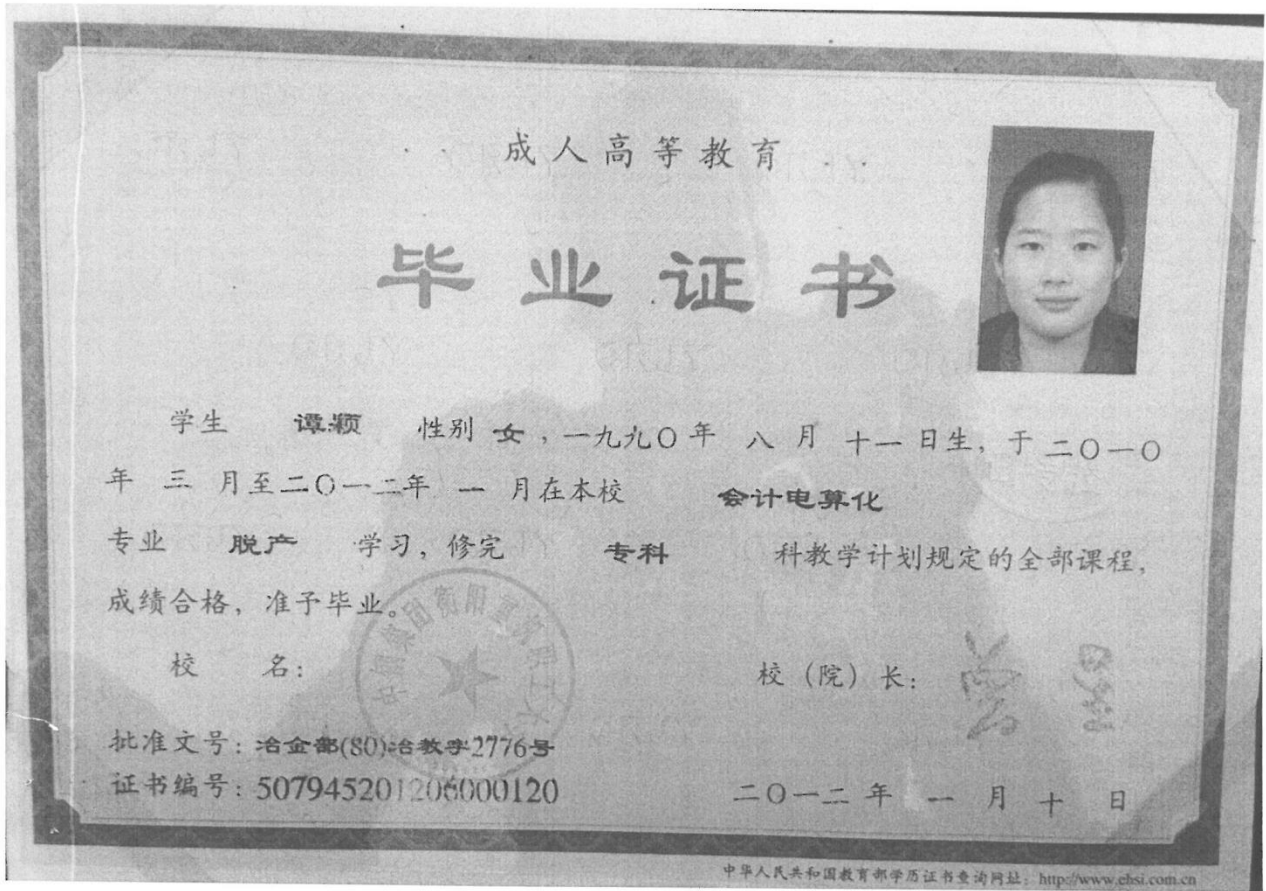 成人高等教育
毕业证书
学生 谭颖 性别 女，一九九〇年 八 月 十一 日生，于 二〇一〇
年 三 月至二〇一二年 一 月在本校 会计电算化
专业 脱产 学习，修完 专科 科教学计划规定的全部课程，
成绩合格，准予毕业。
校 名：
校（院）长：
批准文号：冶金部(80)冶教字2776号
证书编号：507945201206000120
二〇一二 年 一 月 十 日
中华人民共和国教育部学历证书查询网址：http://www.chsi.com.cn